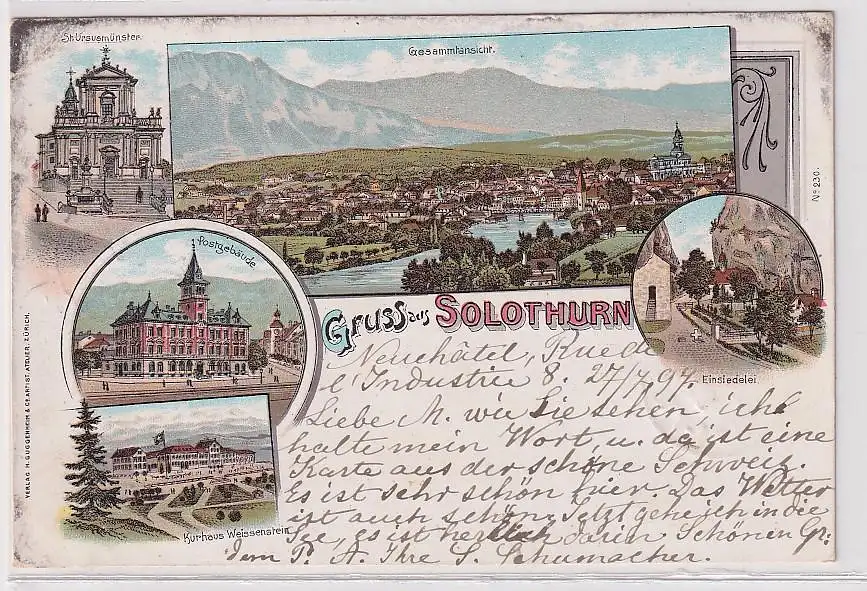 St. Ursusmünster.
Gesammtansicht.
No 230.
Postgebäude
Gruss aus SOLOTHURN
Einsiedelei
VERLAG H. GUGGENHEIM & Co ARTIST. ATELIER, ZÜRICH.
Kurhaus Weissenstein
Neuchâtel, Rue de
l'Industrie 8. 27/7.97.
Liebe M. wie Sie sehen, ich
halte mein Wort, u. da ist eine
Karte aus der schöne Schweiz.
Es ist sehr schön hier. Das Wetter
ist auch schön. Jetzt gehe ich in die
See, es ist herrlich darin Schönen Gr:
dem P. A. Ihre S. Schumacher.